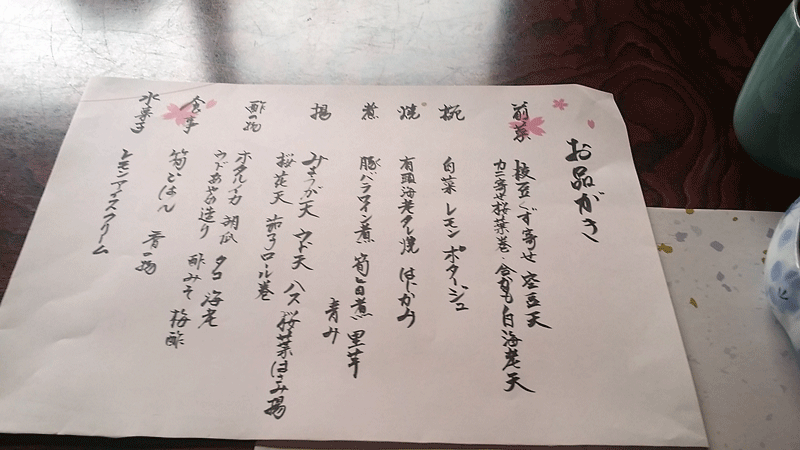 お品がき
前菜
枝豆くず寄せ 空豆天
カニ寄せ桜葉巻 合がも 白海老天
椀
白菜 レモン ポタージュ
焼
有頭海老タレ焼 はじかみ
煮
豚バラワイン煮 筍旨煮 里芋
青み
揚
みょうが天 ウド天 ハス桜葉はさみ揚
桜花天 茄子ロール巻
酢の物
ホタルイカ 胡瓜 タコ 海老
酢みそ 梅酢
食事
筍ごはん 香の物
水菓子
レモンアイスクリーム